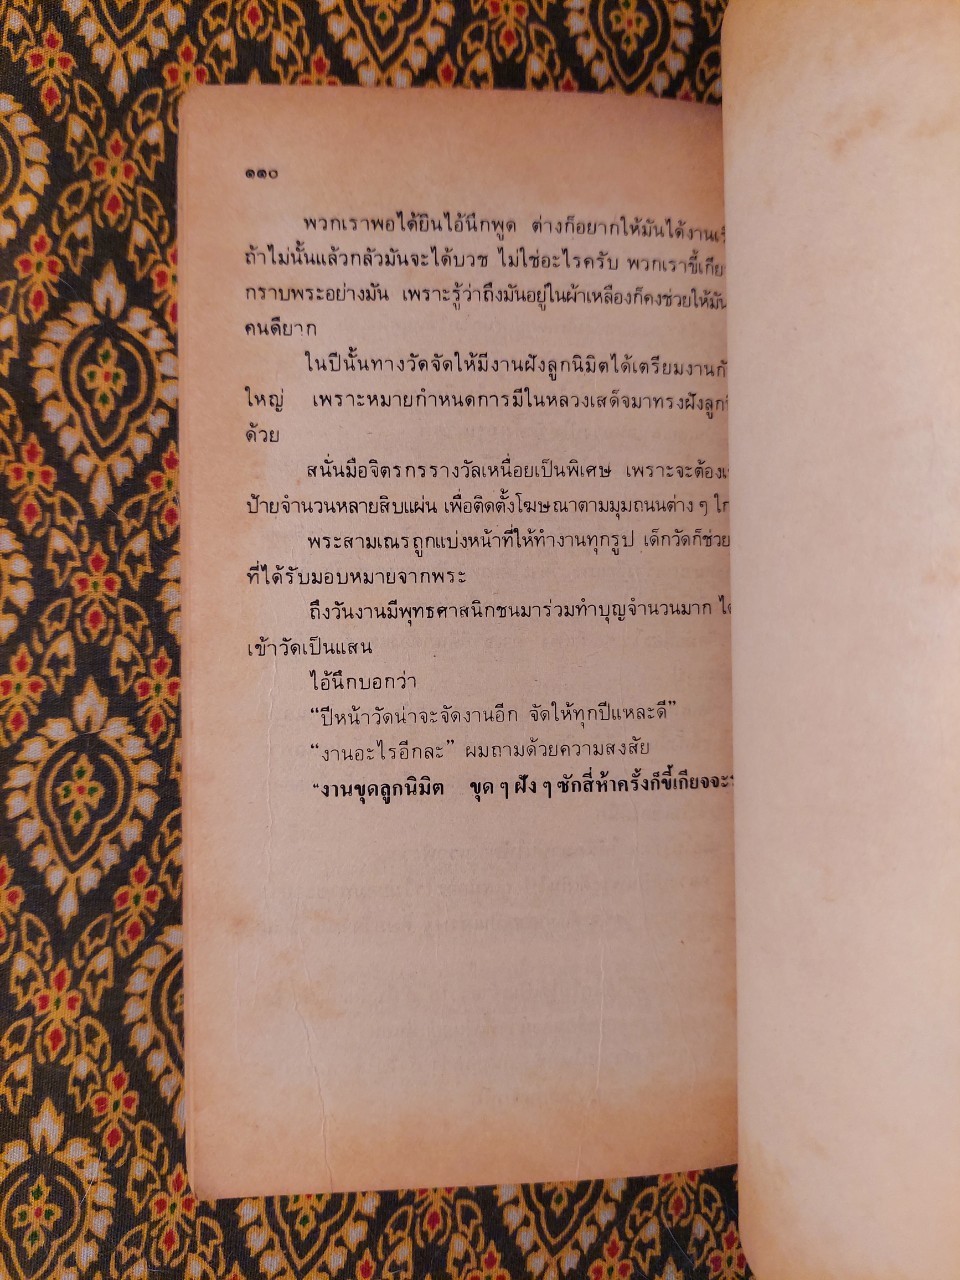 ๑๑๐
พวกเราพอได้ยินไอ้นึกพูด ต่างก็อยากให้มันได้งาน
ถ้าไม่นั้นแล้วกลัวมันจะได้บวช ไม่ใช่อะไรครับ พวกเราขี้เกีย
กราบพระอย่างมัน เพราะรู้ว่าถึงมันอยู่ในผ้าเหลืองก็คงช่วยให้มัน
คนดียาก
ในปีนั้นทางวัดจัดให้มีงานฝังลูกนิมิตได้เตรียมงานกั
ใหญ่ เพราะหมายกำหนดการมีในหลวงเสด็จมาทรงฝังลูก
ด้วย
สนั่นมือจิตรกรรางวัลเหนื่อยเป็นพิเศษ เพราะจะต้อง
ป้ายจำนวนหลายสิบแผ่น เพื่อติดตั้งโฆษณาตามมุมถนนต่าง ๆ
พระสามเณรถูกแบ่งหน้าที่ให้ทำงานทุกรูป เด็กวัดก็ช่วย
ที่ได้รับมอบหมายจากพระ
ถึงวันงานมีพุทธศาสนิกชนมาร่วมทำบุญจำนวนมาก ได
เข้าวัดเป็นแสน
ไอ้นึกบอกว่า
“ปีหน้าวัดน่าจะจัดงานอีก จัดให้ทุกปีแหละดี”
“งานอะไรอีกละ” ผมถามด้วยความสงสัย
“งานขุดลูกนิมิต ขุด ๆ ฝัง ๆ ซักสี่ห้าครั้งก็ขี้เกียจจะ